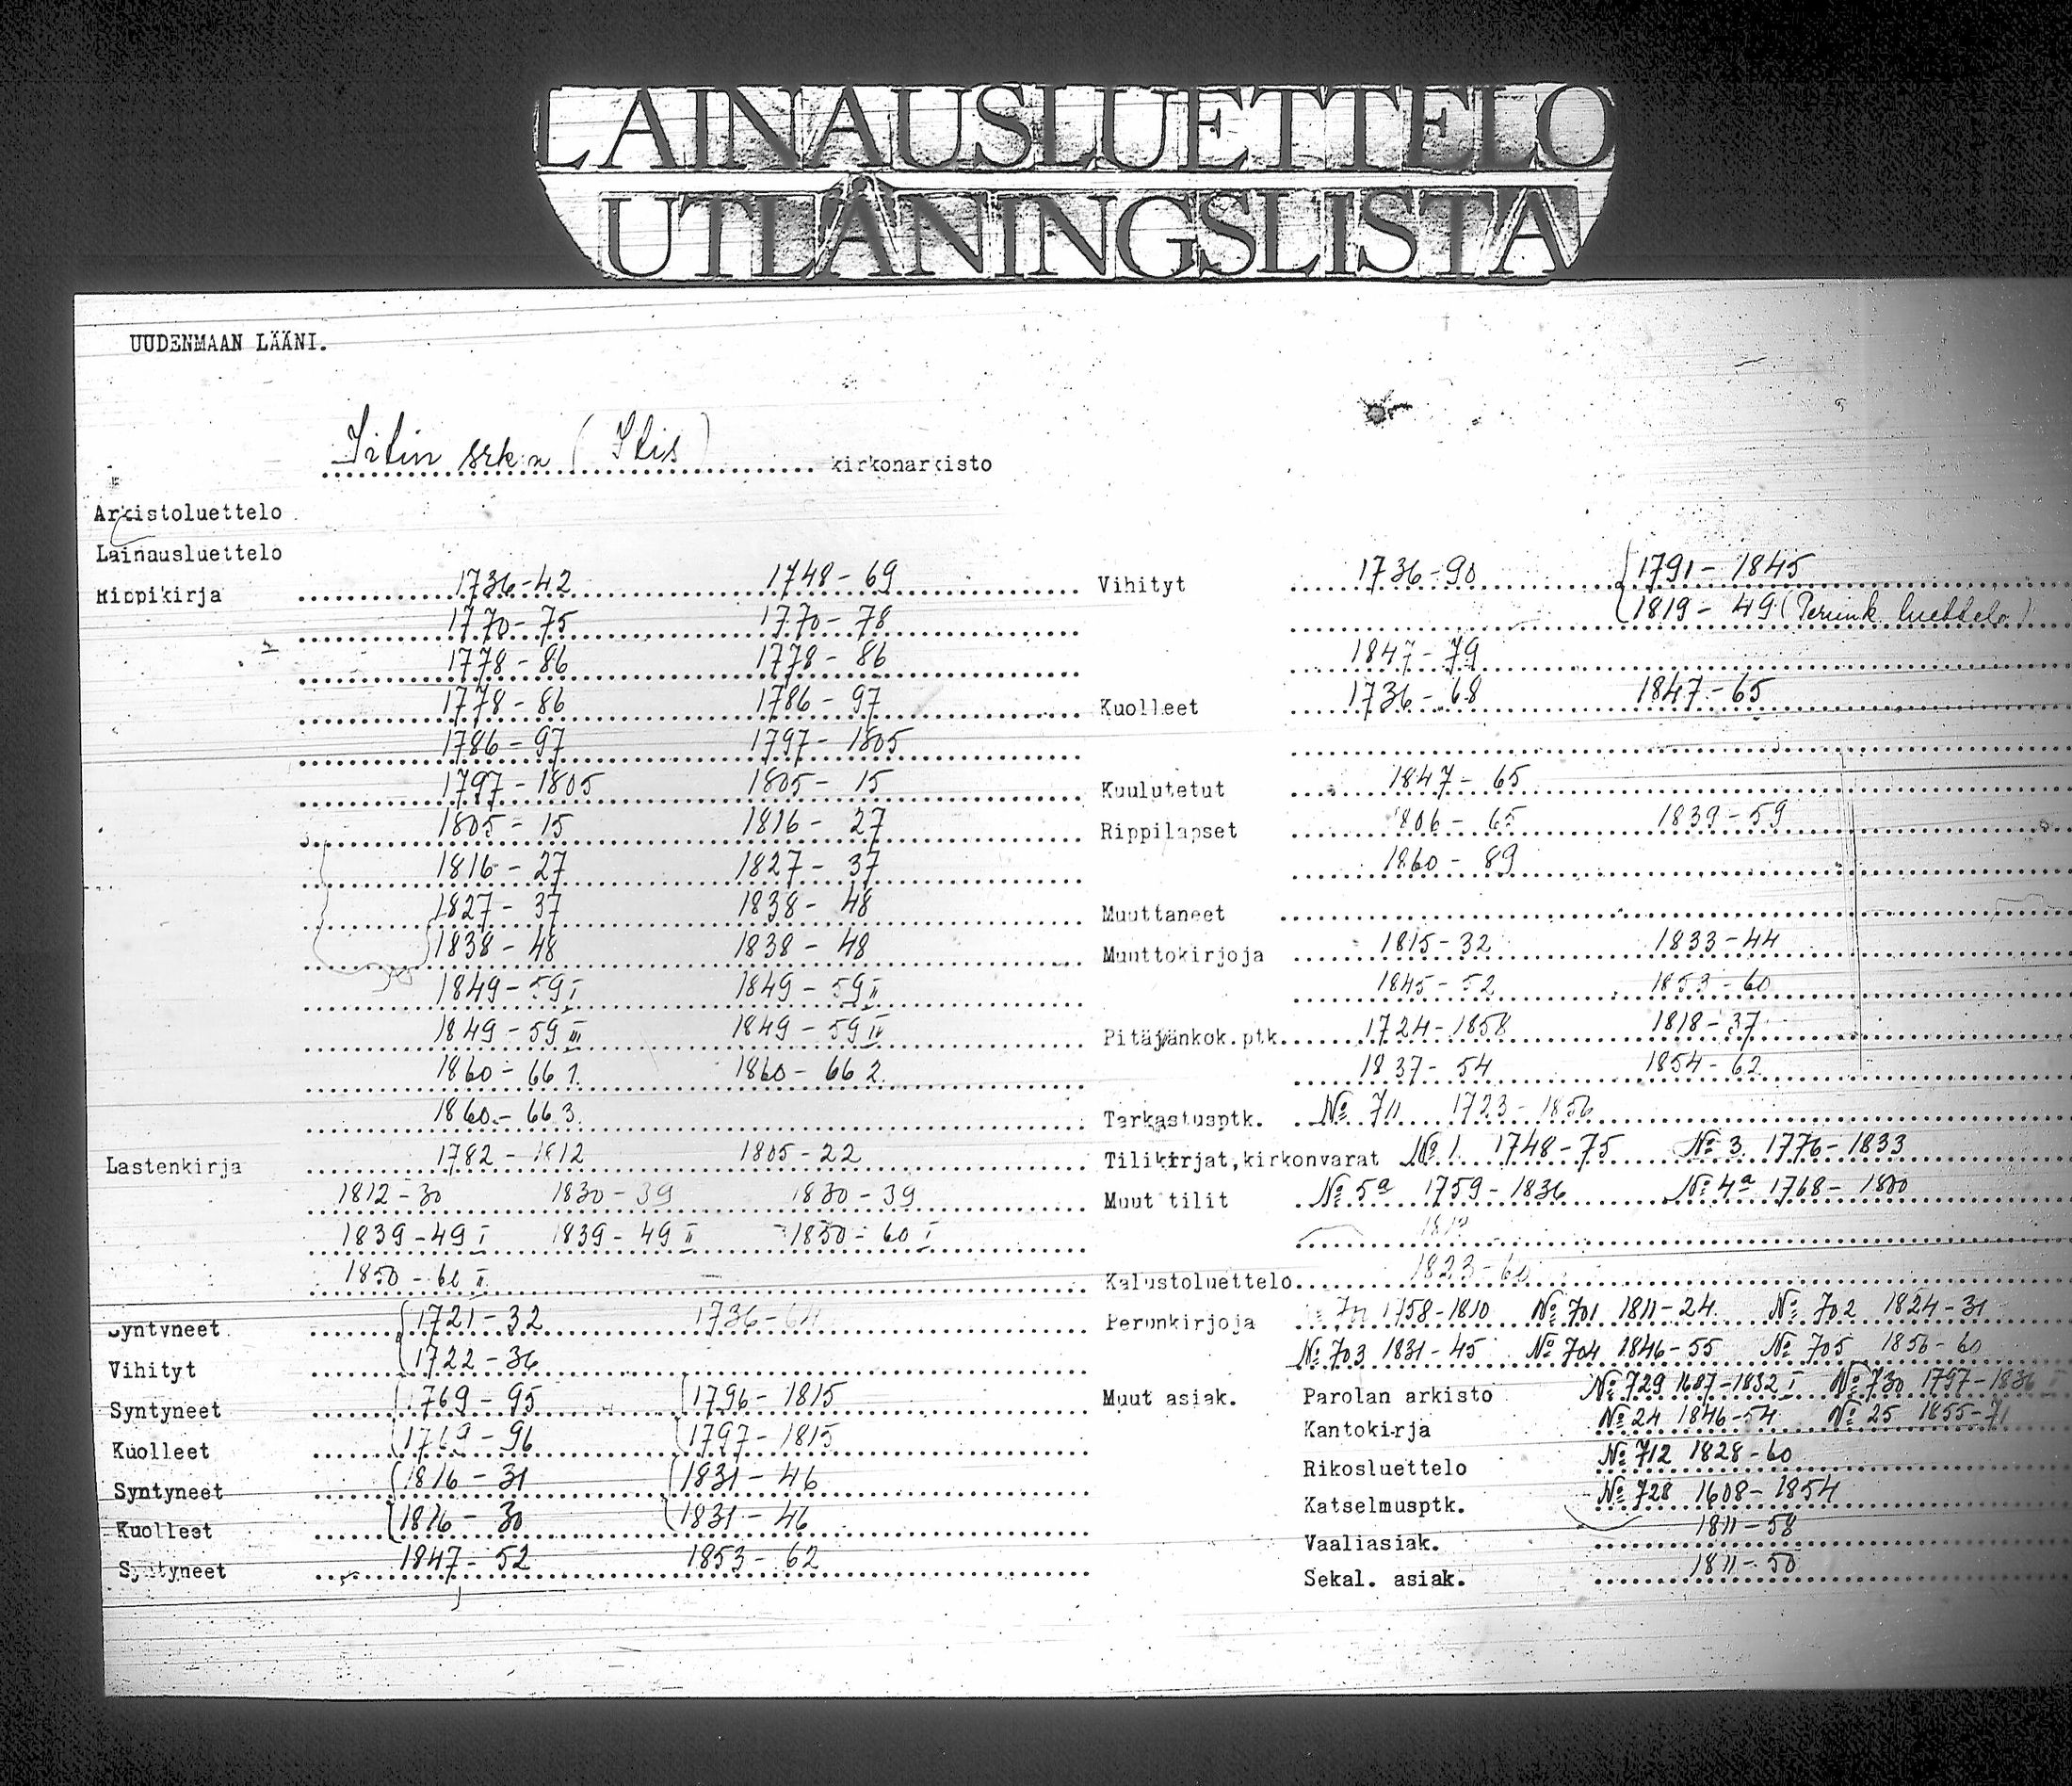 LAINAUSLUETTELO
UTLÅNINGSLISTA
UUDENMAAN LÄÄNI.
Iitin srk:n (Itis) kirkonarkisto
Arkistoluettelo
Lainausluettelo
Rippikirja 1736-42 1748-69
1770-75 1770-78
1778-86 1778-86
1778-86 1786-97
1786-97 1797-1805
1797-1805 1805-15
1805-15 1816-27
1816-27 1827-37
1827-37 1838-48
1838-48 1838-48
1849-59 I 1849-59 II
1849-59 III 1849-59 IV
1860-66 1. 1860-66 2.
1860-66 3.
Lastenkirja 1782-1812 1805-22
1812-30 1830-39 1830-39
1839-49 I 1839-49 II 1850-60 I
1850-60 II
Syntyneet 1721-32 1736-64
Vihityt 1722-36
Syntyneet 1769-95 1796-1815
Kuolleet 1769-96 1797-1815
Syntyneet 1816-31 1831-46
Kuolleet 1816-30 1831-46
Syntyneet 1847-52 1853-62
Vihityt 1736-90 1791-1845
1819-49 (Perunk. luettelo)
1847-79
Kuolleet 1736-68 1847-65
Kuulutetut 1847-65
Rippilapset 1806-65 1839-59
1860-89
Muuttaneet
Muuttokirjoja 1815-32 1833-44
1845-52 1853-60
Pitäjänkok.ptk. 1724-1858 1818-37
1837-54 1854-62
Tarkastusptk. № 711 1723-1856
Tilikirjat,kirkonvarat №1. 1748-75 №3. 1776-1833
Muut tilit №5a 1759-1836 №4a 1768-1800
Kalustoluettelo 1823-60
Perunkirjoja 1758-1810 №701 1811-24 № 702 1824-31
№703 1831-45 №704 1846-55 № 705 1856-60
Muut asiak. Parolan arkisto №729 1687-1832 I №730 1797-1836 I
Kantokirja №24 1846-54 №25 1855-71
Rikosluettelo №712 1828-60
Katselmusptk. №728 1608-1854
Vaaliasiak. 1811-58
Sekal. asiak. 1811-50